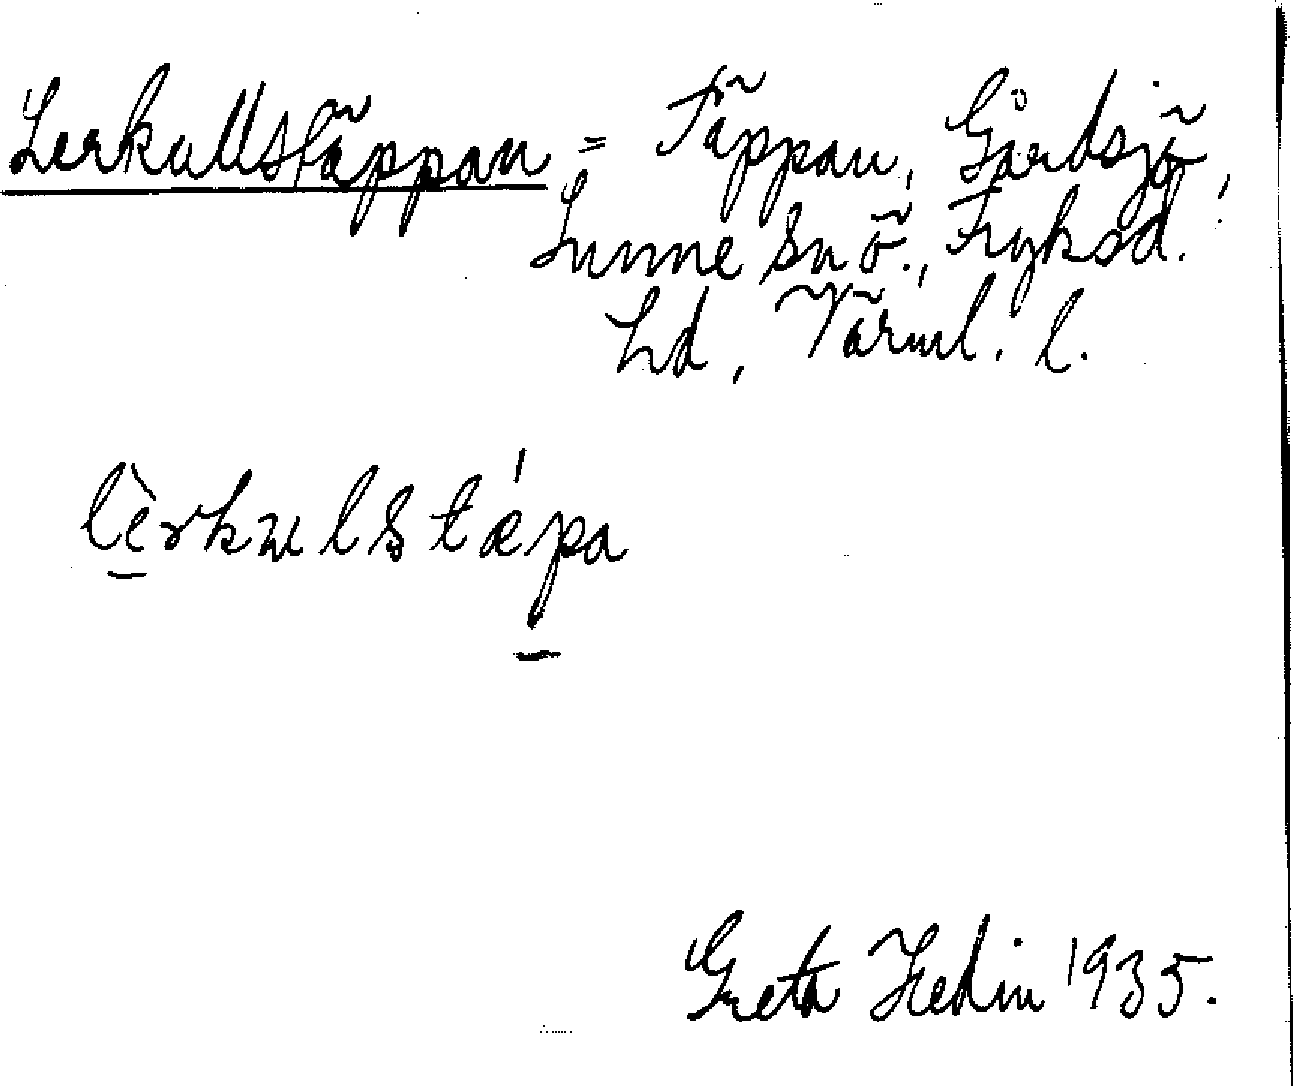 Lerkullstäppan = Täppan, Gårdsjö,
Sunne sn ö., Fryksd.
hd, Värml. l.
lèrkulstǽpa
Greta Hedin 1935.